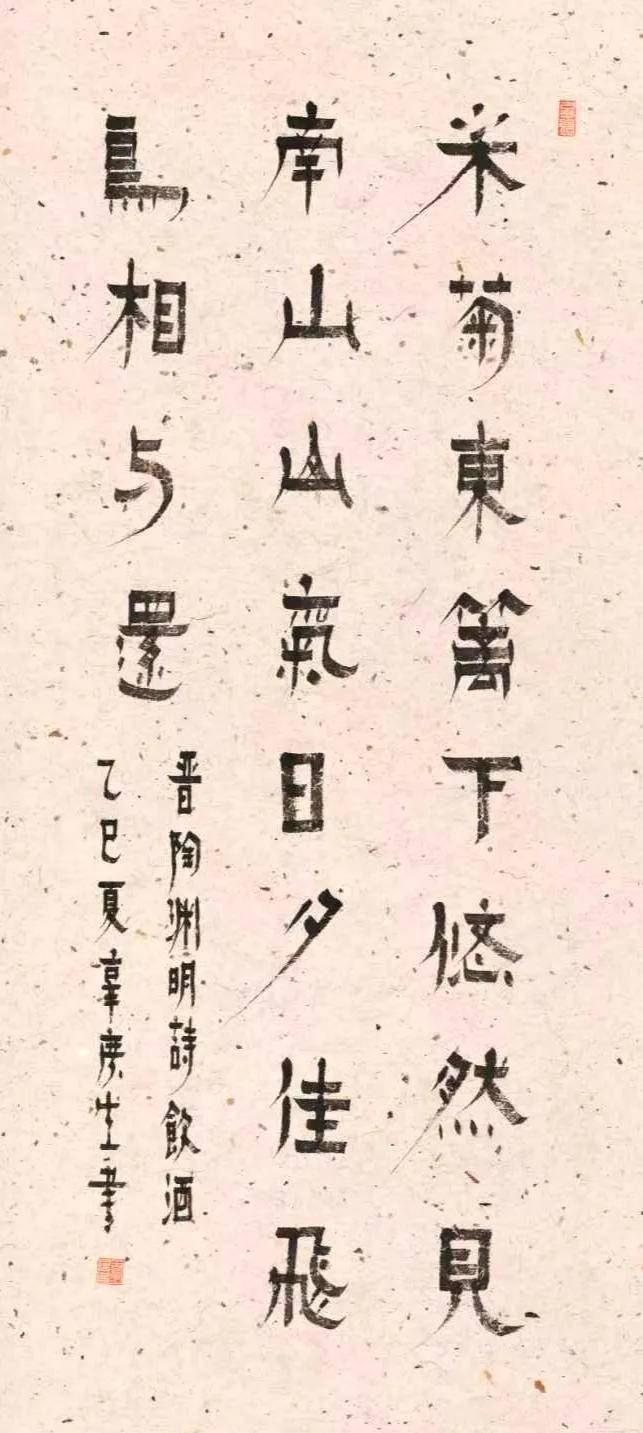 采菊東篱下悠然見
南山山氣日夕佳飛
鳥相与還
晋陶渊明詩飲酒
乙巳夏庚生書